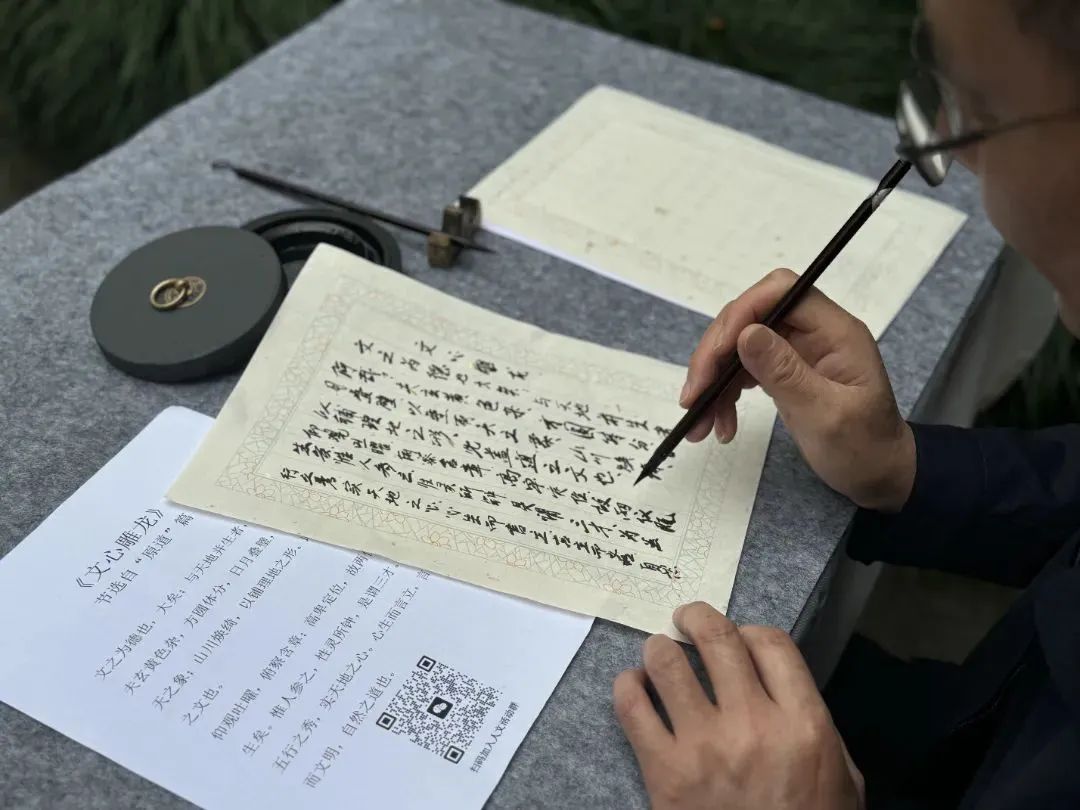 文心雕龙
文之为德也大矣与天地并生
何哉夫玄黄色杂方圆体分
月叠璧以垂丽天之象山川焕
以铺理地之形此盖道之文也
仰观吐曜俯察含章高卑定位故两仪既
生矣惟人参之性灵所钟是谓三才为五
行之秀实天地之心心生而言立言立而文明自然
《文心雕龙》
节选自“原道”篇
文之为德也，大矣；与天地并生者，
夫玄黄色杂，方圆体分，日月叠璧，
天之象；山川焕绮，以铺理地之形，
之文也。
仰观吐曜，俯察含章；高卑定位，故两
生矣。惟人参之，性灵所钟，是谓三才
五行之秀，实天地之心。心生而言立，言
而文明，自然之道也。
扫码加入人文活动群